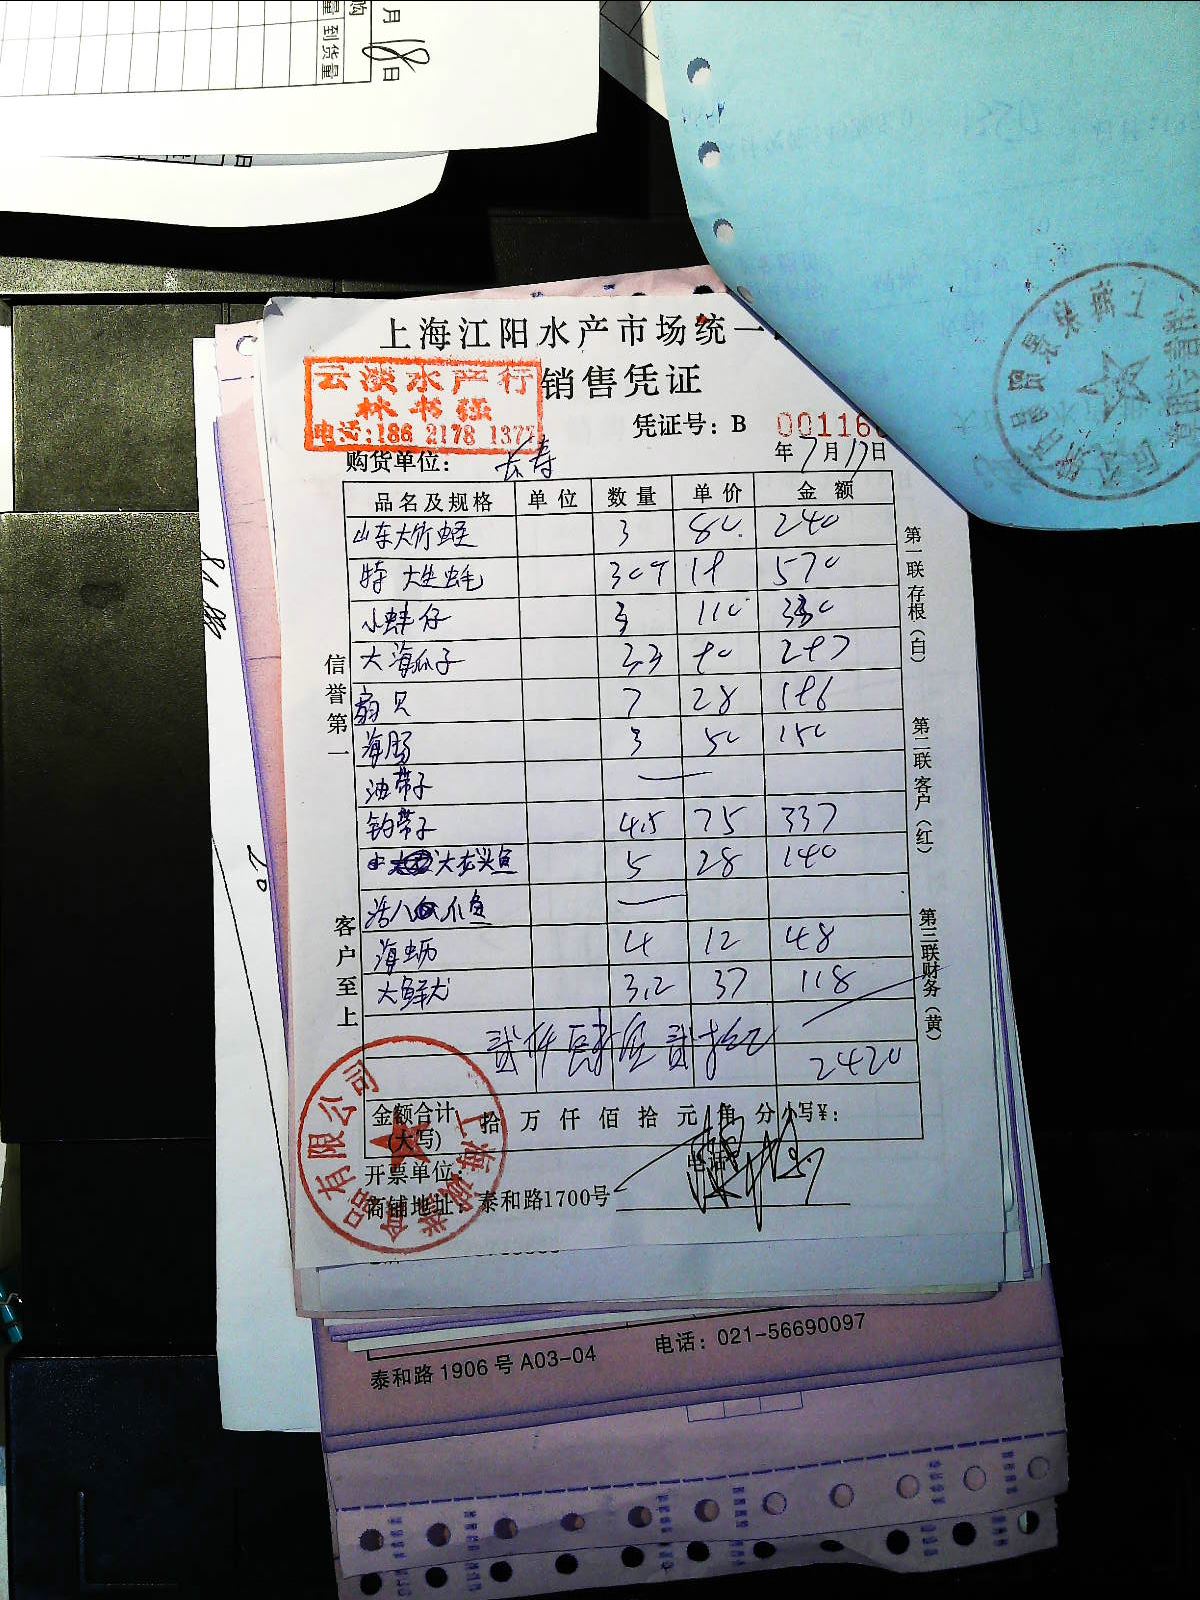 月18日
到货量
上海江阳水产市场统一
销售凭证
云淡水产行
林书强
电话:186 2178 137
凭证号：B 001166
购货单位： 长寿
年7月17日
品名及规格 单位 数量 单价 金额
山东大竹蛏 3 80. 240
特大生蚝 18 570
小蚌仔 3 110 330
大海瓜子 3.3 90 297
扇贝 7 28 196
海肠 3 50 150
油带子 —
钓带子 4.5 75 337
大龙头鱼 5 28 140
活八爪鱼 —
海蛎 4 12 48
大鲜尤 3.2 37 118
贰仟肆佰贰拾元
2420
金额合计
(大写) 拾 万 仟 佰 拾 元 角 分 小写¥：
开票单位：
电话：
商铺地址：泰和路1700号
信誉第一
客户至上
第一联存根（白）
第二联客户（红）
第三联财务（黄）
品有限公司
上海
泰和路 1906 号 A03-04
电话：021-56690097
20